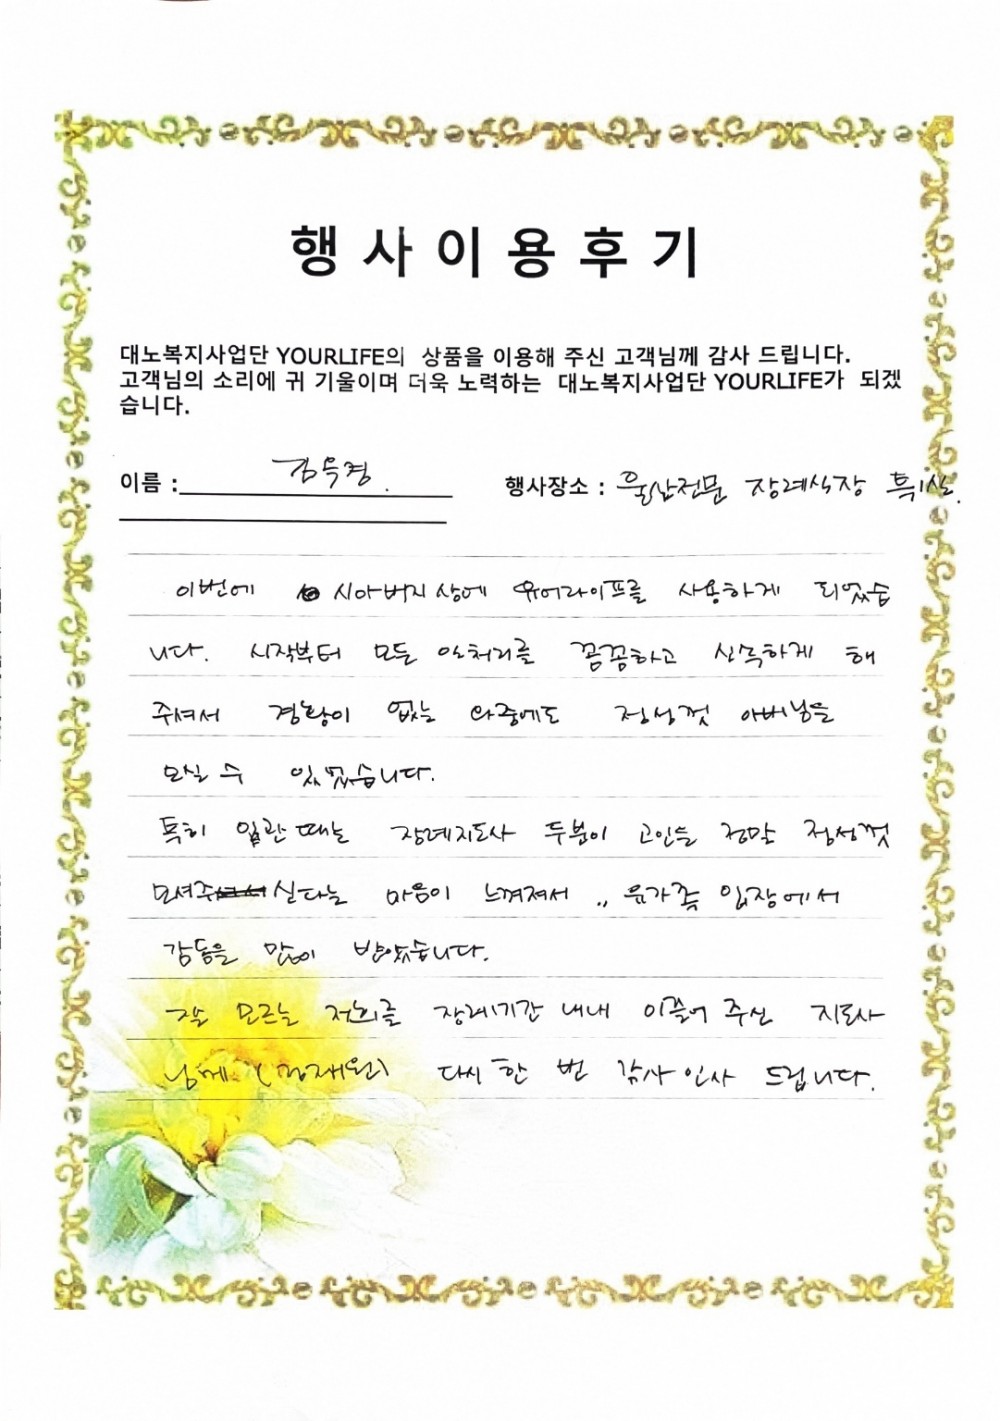 행사이용후기
대노복지사업단 YOURLIFE의 상품을 이용해 주신 고객님께 감사 드립니다.
고객님의 소리에 귀 기울이며 더욱 노력하는 대노복지사업단 YOURLIFE가 되겠
습니다.
이름 : 김무경.
행사장소 : 울산전문 장례식장 특1실.
이번에 시아버지 상에 유어라이프를 사용하게 되었습
니다. 시작부터 모든 일처리를 꼼꼼하고 신속하게 해
주셔서 경황이 없는 와중에도 정성껏 아버님을
모실 수 있었습니다.
특히 입관 때는 장례지도사 두분이 고인을 정말 정성껏
모셔주신다는 마음이 느껴져서 .. 유가족 입장에서
감동을 많이 받았습니다.
잘 모르는 저희를 장례기간 내내 이끌어 주신 지도사
님께 ( ) 다시 한 번 감사 인사 드립니다.